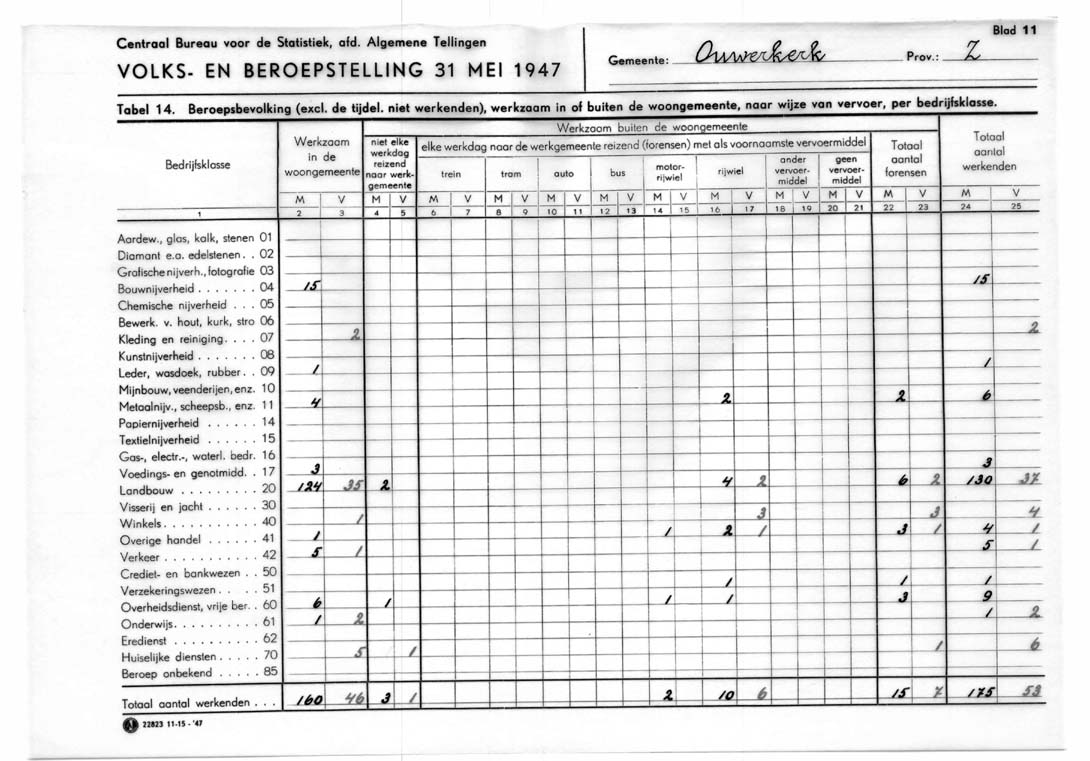 Blad 11
Centraal Bureau voor de Statistiek, afd. Algemene Tellingen
VOLKS- EN BEROEPSTELLING 31 MEI 1947
Gemeente: Ouwerkerk Prov.: Z
Tabel 14. Beroepsbevolking (excl. de tijdel. niet werkenden), werkzaam in of buiten de woongemeente, naar wijze van vervoer, per bedrijfsklasse.
Bedrijfsklasse
Werkzaam in de woongemeente
Werkzaam buiten de woongemeente
niet elke werkdag reizend naar werkgemeente
elke werkdag naar de werkgemeente reizend (forensen) met als voornaamste vervoermiddel
trein tram auto bus motor-rijwiel rijwiel ander vervoer-middel geen vervoer-middel
Totaal aantal forensen
Totaal aantal werkenden
M V M V M V M V M V M V M V M V M V M V M V M V
1 2 3 4 5 6 7 8 9 10 11 12 13 14 15 16 17 18 19 20 21 22 23 24 25
Aardew., glas, kalk, stenen 01
Diamant e.a. edelstenen . . 02
Grafische nijverh., fotografie 03
Bouwnijverheid . . . . . . . 04 15 15
Chemische nijverheid . . . 05
Bewerk. v. hout, kurk, stro 06
Kleding en reiniging . . . . 07 2 2
Kunstnijverheid . . . . . . . 08
Leder, wasdoek, rubber . . 09 1 1
Mijnbouw, veenderijen, enz. 10
Metaalnijv., scheepsb., enz. 11 4 2 2 6
Papiernijverheid . . . . . . 14
Textielnijverheid . . . . . . 15
Gas-, electr.-, waterl. bedr. 16
Voedings- en genotmidd. . 17 3 3
Landbouw . . . . . . . . . 20 124 35 2 4 2 6 2 130 37
Visserij en jacht . . . . . . 30
Winkels . . . . . . . . . . . 40 1 3 3 4
Overige handel . . . . . . 41 1 1 2 1 3 1 4 1
Verkeer . . . . . . . . . . . 42 5 1 5 1
Crediet- en bankwezen . . 50
Verzekeringswezen . . . . 51 1 1 1
Overheidsdienst, vrije ber. . 60 6 1 1 1 3 9
Onderwijs . . . . . . . . . . 61 1 2 1 2
Eredienst . . . . . . . . . 62
Huiselijke diensten . . . . . 70 5 1 1 6
Beroep onbekend . . . . . 85
Totaal aantal werkenden . . . 160 46 3 1 2 10 6 15 7 175 53
22823 11-15-'47